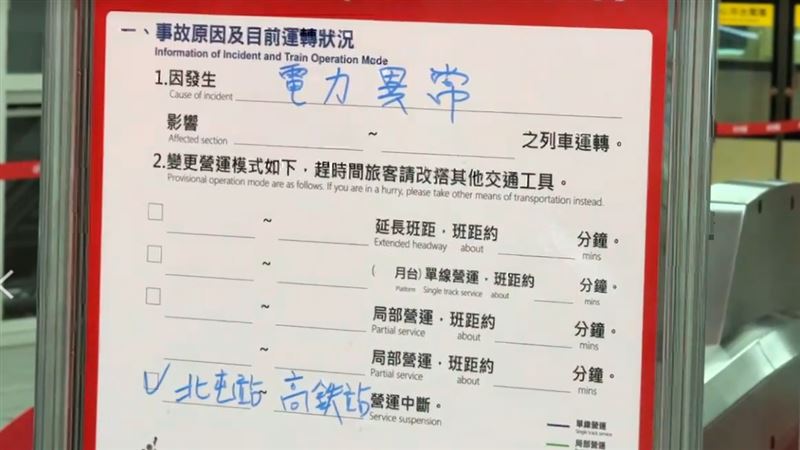 一、事故原因及目前運轉狀況
Information of Incident and Train Operation Mode
1.因發生 電力異常
Cause of incident
影響 ~ 之列車運轉。
Affected section
2.變更營運模式如下，趕時間旅客請改搭其他交通工具。
Provisional operation mode are as follows. If you are in a hurry, please take other means of transportation instead.
□ ~ 延長班距，班距約 分鐘。
Extended headway about mins
□ ~ ( 月台)單線營運，班距約 分鐘。
Platform Single track service about mins
□ ~ 局部營運，班距約 分鐘。
Partial service about mins
~ 局部營運，班距約 分鐘。
Partial service about mins
✓ 北屯站~高鐵站 營運中斷。
Service suspension
單線營運
Single track service
局部營運